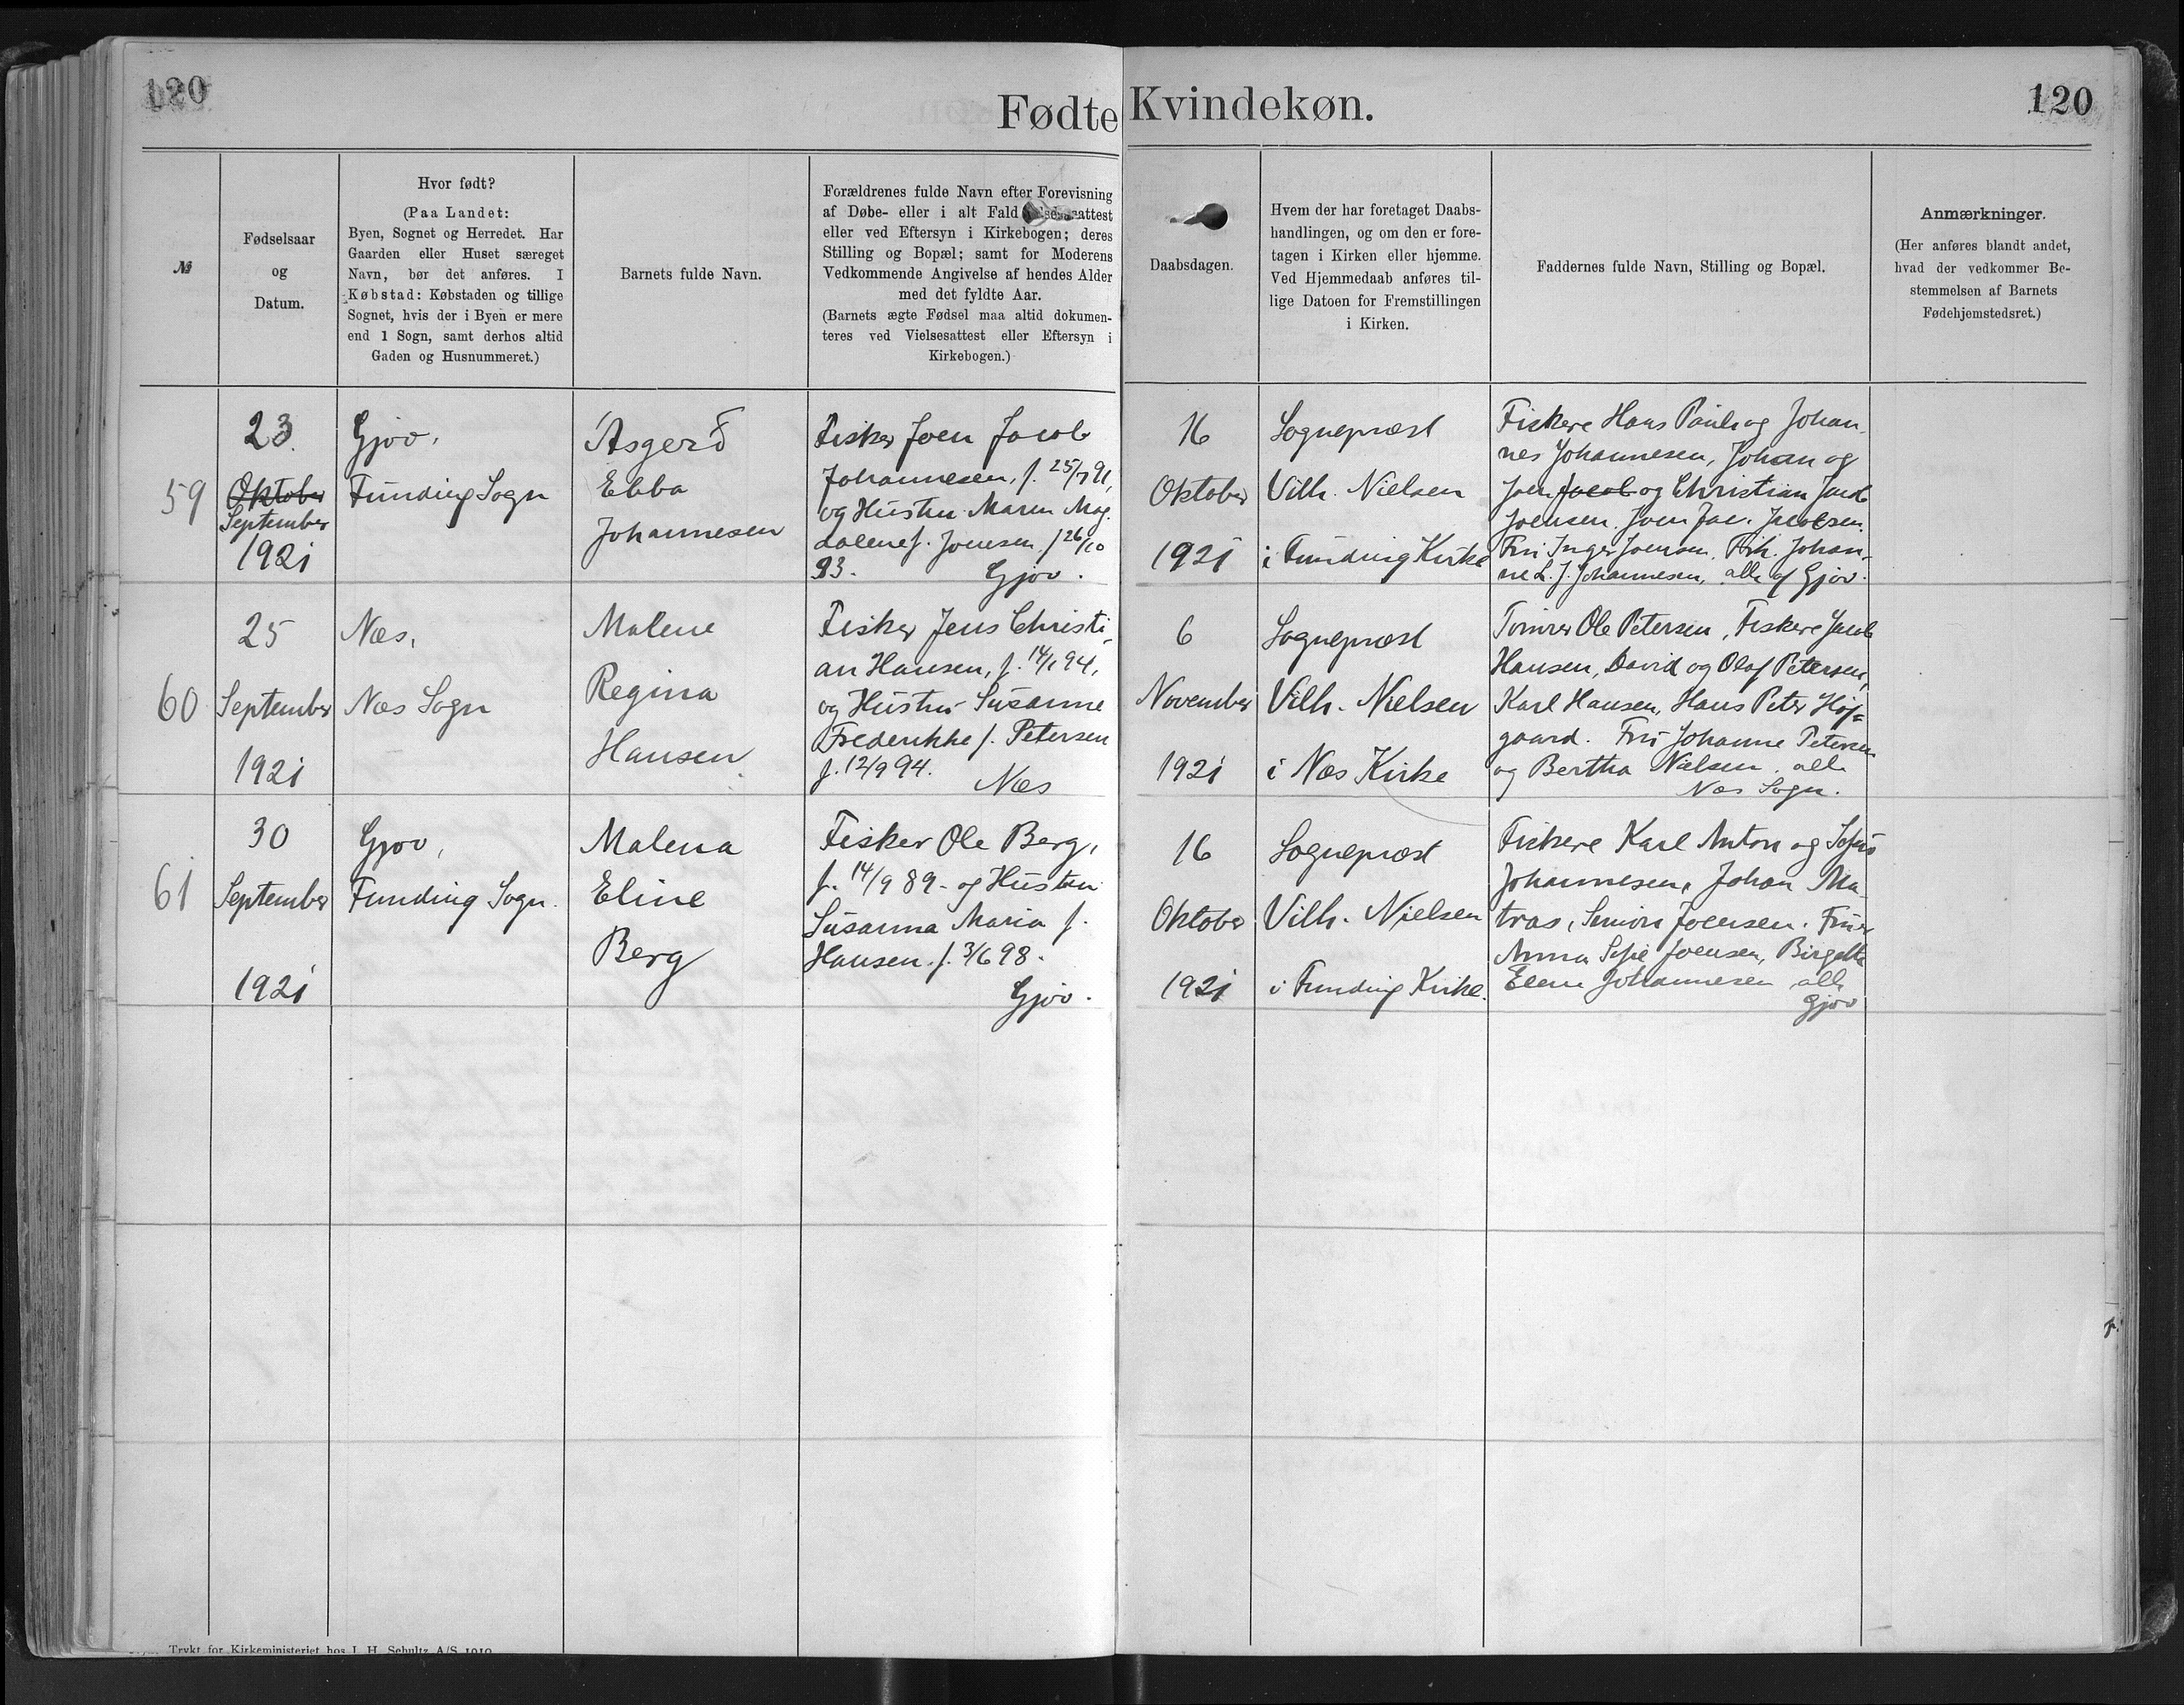 120
Fødte Kvindekøn.
120
№
Fødselsaar
og
Datum.
Hvor født?
(Paa Landet:
Byen, Sognet og Herredet. Har
Gaarden eller Huset særeget
Navn, bør det anføres. I
Købstad: Købstaden og tillige
Sognet, hvis der i Byen er mere
end 1 Sogn, samt derhos altid
Gaden og Husnummeret.)
Barnets fulde Navn.
Forældrenes fulde Navn efter Forevisning
af Døbe- eller i alt Fald
eller ved Eftersyn i Kirkebogen; deres
Stilling og Bopæl; samt for Moderens
Vedkommende Angivelse af hendes Alder
med det fyldte Aar.
(Barnets ægte Fødsel maa altid dokumen-
teres ved Vielsesattest eller Eftersyn i
Kirkebogen.)
Daabsdagen.
Hvem der har foretaget Daabs-
handlingen, og om den er fore-
tagen i Kirken eller hjemme.
Ved Hjemmedaab anføres til-
lige Datoen for Fremstillingen
i Kirken.
Faddernes fulde Navn, Stilling og Bopæl.
Anmærkninger.
(Her anføres blandt andet,
hvad der vedkommer Be-
stemmelsen af Barnets
Fødehjemstedsret.)
59
23.
Oktober
September
1921
Gjov,
Funding Sogn
Asgerd
Ebba
Johannesen
Fisker Joen Jacob
Johannesen, f. 25/7 91,
og Hustru Maren Mag-
dalene f. Joensen f 26/10
93. Gjov.
16
Oktober
1921
Sognepræst
Vilh. Nielsen
i Funding Kirke
Fiskere Hans Paul og Johan-
nes Johannesen, Johan og
Joen Jacob og Christian Jacob
Joensen. Joen Jac. Jacobsen.
Fru Inger Joensen, Johan-
ne L. J. Johannesen, alle af Gjov.
60
25
September
1921
Næs,
Næs Sogn
Malene
Regina
Hansen
Fisker Jens Christi-
an Hansen, f. 14/1 94,
og Hustru Susanne
Frederikke f. Petersen
f. 12/9 94. Næs
6
November
1921
Sognepræst
Vilh. Nielsen
i Næs Kirke
Tømrer Ole Petersen, Fiskere Jacob
Hansen, David og Olaf Petersen,
Karl Hansen, Hans Peter Høj-
gaard. Fru Johanne Petersen
og Bertha Nielsen, alle
Næs Sogn.
61
30
September
1921
Gjov,
Funding Sogn.
Malena
Eline
Berg
Fisker Ole Berg,
f. 14/9 89- og Hustru
Susanna Maria f.
Hansen. f. 3/6 98.
Gjov.
16
Oktober
1921
Sognepræst
Vilh. Nielsen
i Funding Kirke.
Fiskere Karl Anton og
Johannesen, Johan Ma-
tras, Simon Joensen. Fruer
Anna Joensen, Birgette
Elene Johannesen alle
Gjov
Trykt for Kirkeministeriet hos J. H. Schultz A/S 1919